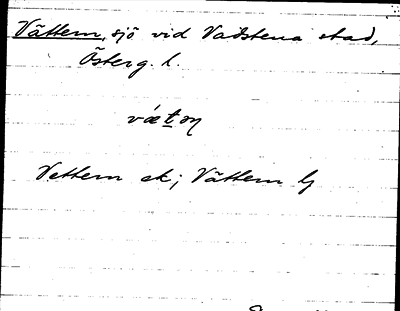 Vättern, sjö vid Vadstena stad,
Österg. l.
væ´təṇ
Vettern ek; Vättern lj